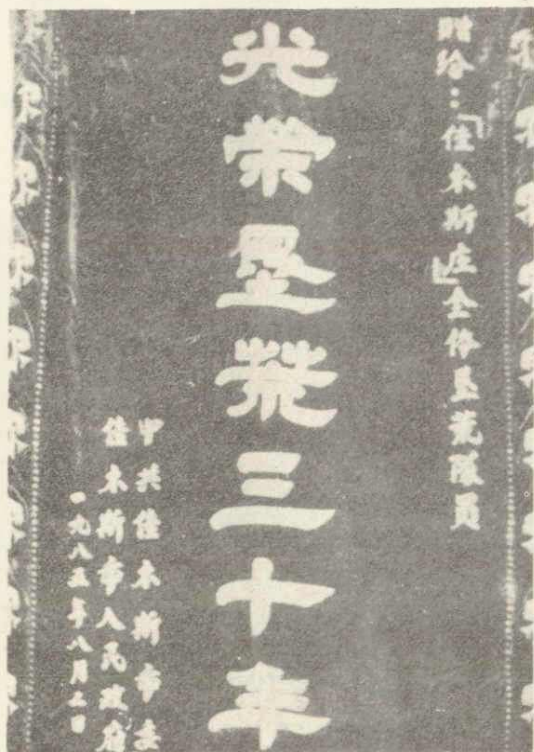 赠给：「佳木斯庄」全体垦荒队员
光荣垦荒三十年
中共佳木斯市委
佳木斯市人民政府
一九八五年八月 日